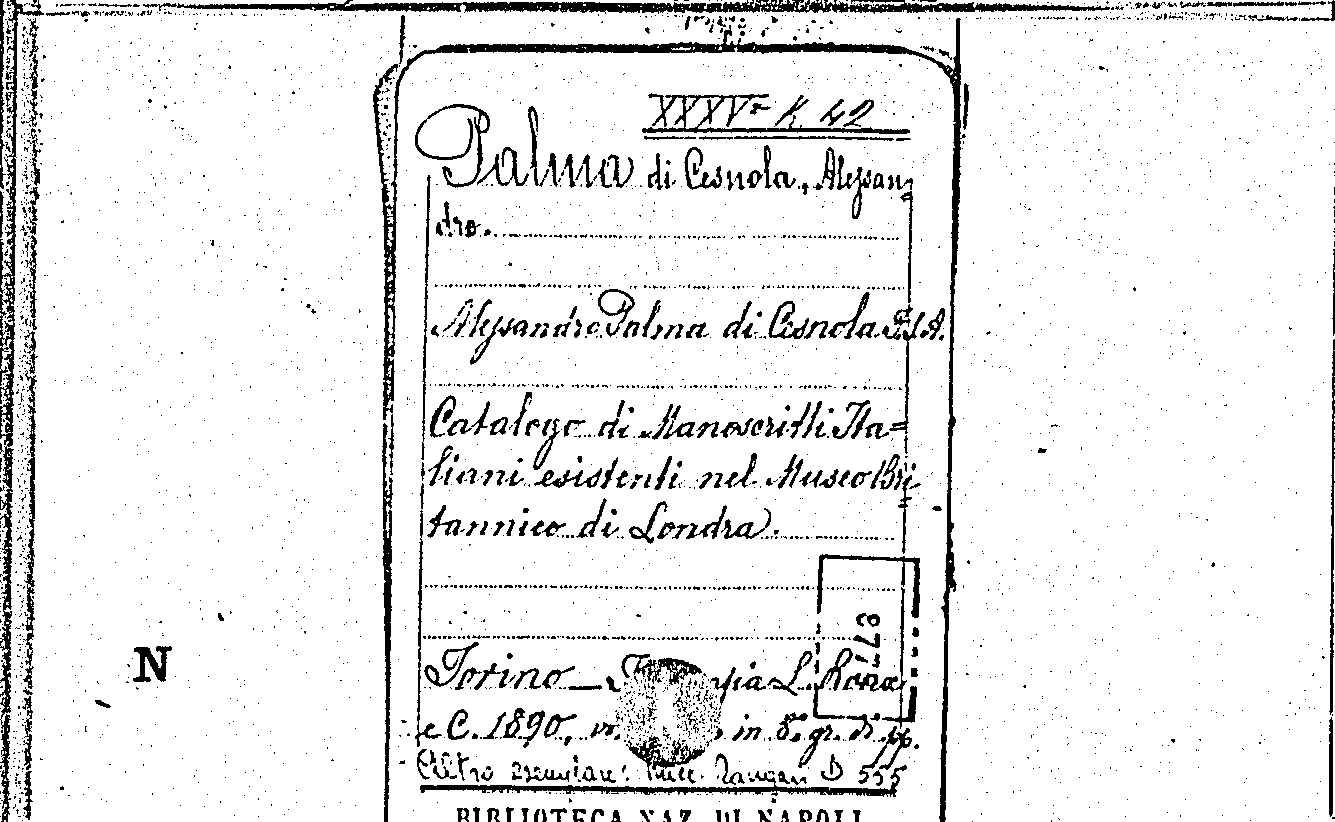 XXXVa K 42
Palma di Cesnola, Alessan=
dro.
Alessandro Palma di Cesnola F.S.A.
Catalogo di Manoscritti Ita=
liani esistenti nel Museo Bri=
tannico di Londra.
377
N
Torino — L. Roux
e C. 1890, in 8.° gr. di pp.
Altro esemplare: D 555
BIBLIOTECA NAZ. DI NAPOLI